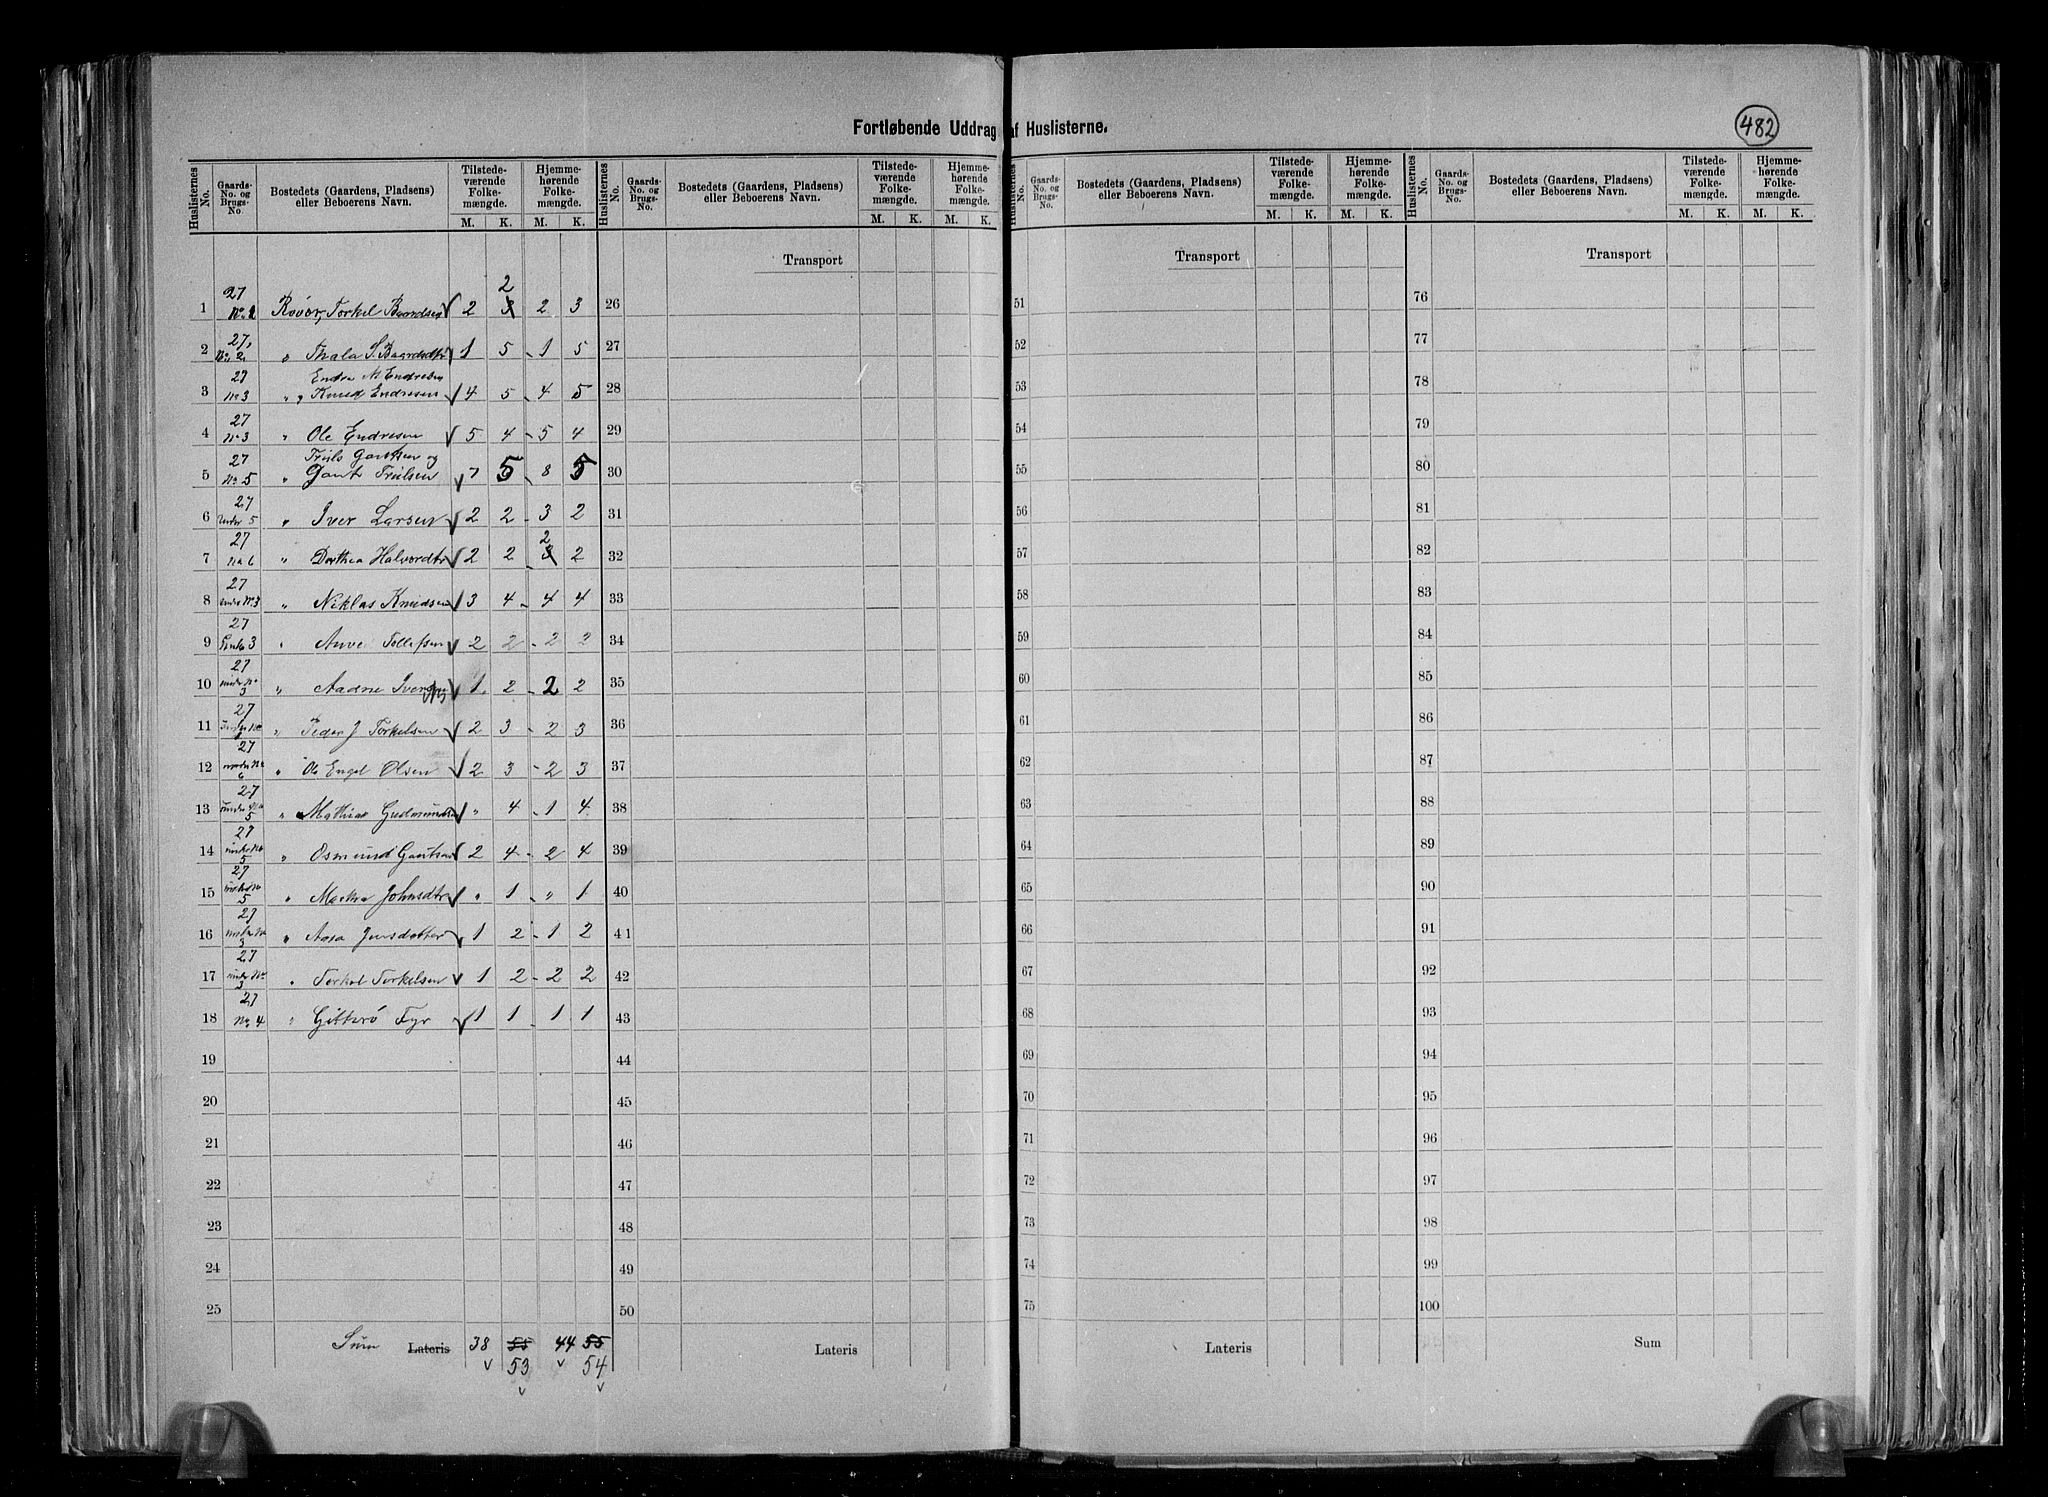 Fortløbende Uddrag af Huslisterne.
482
Huslisternes No. Gaards-No. og Brugs-No. Bostedets (Gaardens, Pladsens) eller Beboerens Navn. Tilstedeværende Folkemængde. M. K. Hjemmehørende Folkemængde. M. K.
Huslisternes No. Gaards-No. og Brugs-No. Bostedets (Gaardens, Pladsens) eller Beboerens Navn. Tilstedeværende Folkemængde. M. K. Hjemmehørende Folkemængde. M. K.
Huslisternes No. Gaards-No. og Brugs-No. Bostedets (Gaardens, Pladsens) eller Beboerens Navn. Tilstedeværende Folkemængde. M. K. Hjemmehørende Folkemængde. M. K.
Huslisternes No. Gaards-No. og Brugs-No. Bostedets (Gaardens, Pladsens) eller Beboerens Navn. Tilstedeværende Folkemængde. M. K. Hjemmehørende Folkemængde. M. K.
Transport Transport Transport
1 27 Røvær, Torkel Baardsen 2 3 2 2 3 26 51 76
2 27, No. 2. " Thala S. Baardsdtr 1 5 - 1 5 27 52 77
Endre Endresen
3 27 No 3 " Knud Endresen 4 5 - 4 5 28 53 78
4 27 No 3 " Ole Endresen 5 4 - 5 4 29 54 79
og
5 27 No. 5 " Gaut 7 5 - 8 5 30 55 80
6 27 Under 5 " Iver Larsen 2 2 - 3 2 31 56 81
7 27 No 6 " Dorthea Halvordtr 2 2 3 2 2 32 57 82
8 27 under No. 3 " Niklas Knudsen 3 4 - 4 4 33 58 83
9 27 3 " Tollefsen 2 2 - 2 2 34 59 84
10 27 under No 3 " Aadne Iversen 1 2 - 2 2 35 60 85
11 27 " Peder J Torkelsen 2 3 - 2 3 36 61 86
12 27 under No 6 " Ole Engel Olsen 2 3 - 2 3 37 62 87
13 27 under No 5 " Mathias Gudmundsen " 4 - 1 4 38 63 88
14 27 under No 5 " Osmund Gautsen 2 4 - 2 4 39 64 89
15 27 under No 5 " Martha Johnsdtr " 1 " 1 40 65 90
16 27 under No 3 " Aasa Jensdatter 1 2 - 1 2 41 66 91
17 27 under No 3 " Torkel Torkelsen 1 2 - 2 2 42 67 92
18 27 No. 4 " Gitterø Fyr 1 1 - 1 1 43 68 93
19 44 69 94
20 45 70 95
21 46 71 96
22 47 72 97
23 48 73 98
24 49 74 99
25 50 75 100
Sum Lateris 38 55 44 55 Lateris Lateris Sum
53 54